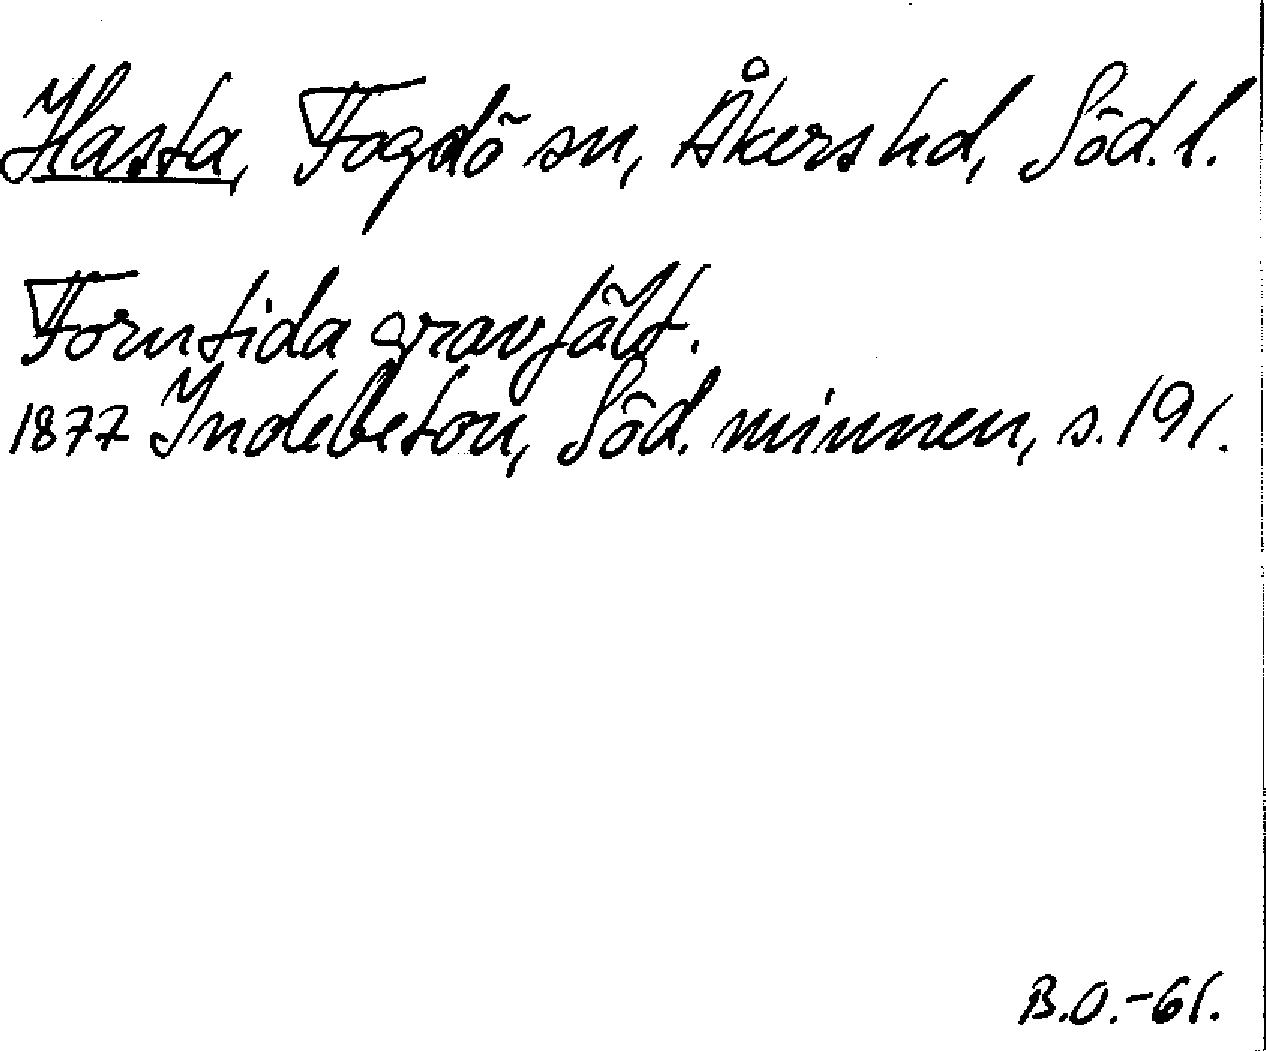 Hasta, Fogdö sn, Åkers hd, Söd. l.
Forntida gravfält.
1877 Indebetou, Söd. minnen, s. 191.
B.O.-61.